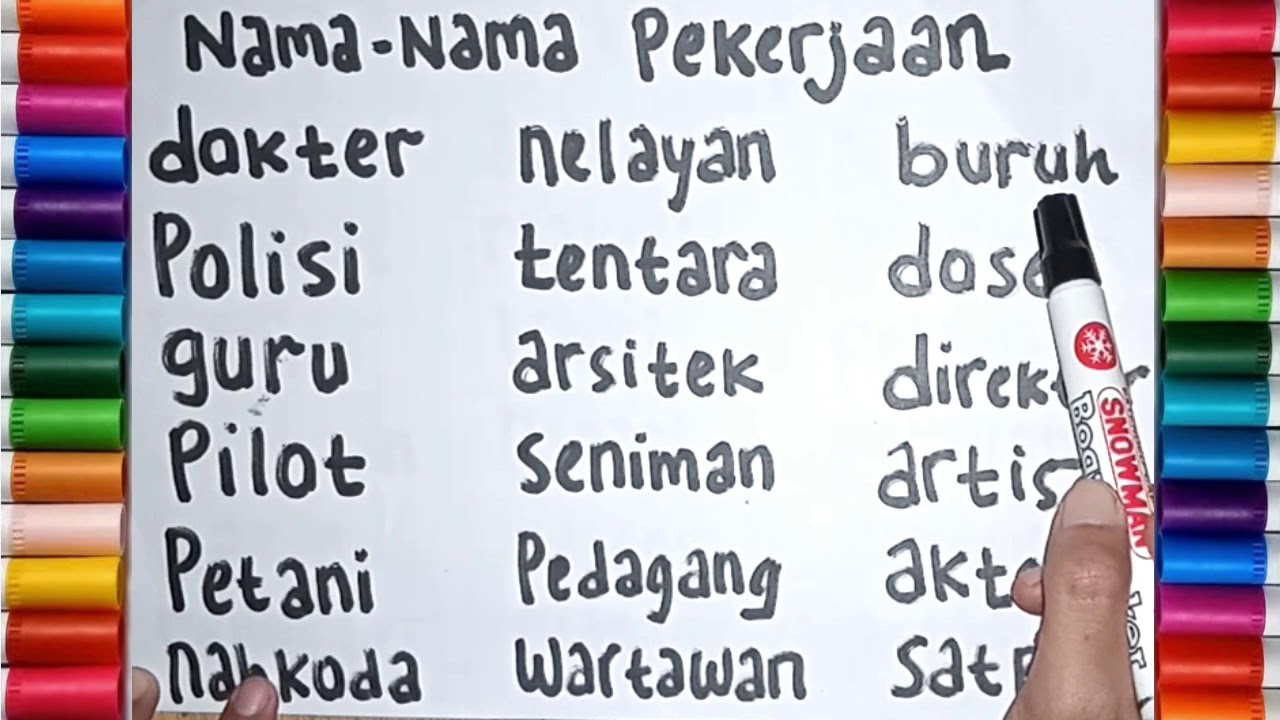 Nama-Nama Pekerjaan
dokter nelayan buruh
Polisi tentara
guru arsitek
Pilot seniman
Petani Pedagang
nahkoda wartawan
SNOWMAN